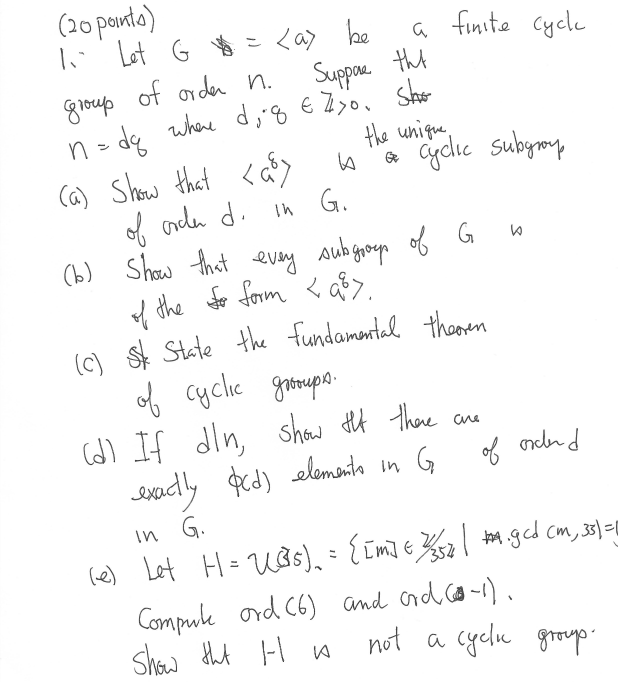 (20 points)
1. Let G = <a> be a finite cyclic
group of order n. Suppose tht
n = dq where d, q ∈ ℤ>0.
(a) Show that <a^q> is the unique cyclic subgroup
of order d. in G.
(b) Show that every subgroup of G is
of the form <a^q>.
(c) State the fundamental theorem
of cyclic groups.
(d) If d|n, show tht there are
exactly φ(d) elements in G of order d
in G.
(e) Let H = U(35). = {[m] ∈ ℤ/35ℤ | gcd (m, 35)=1
Compute ord(6) and ord(-1).
Show tht H is not a cyclic group.